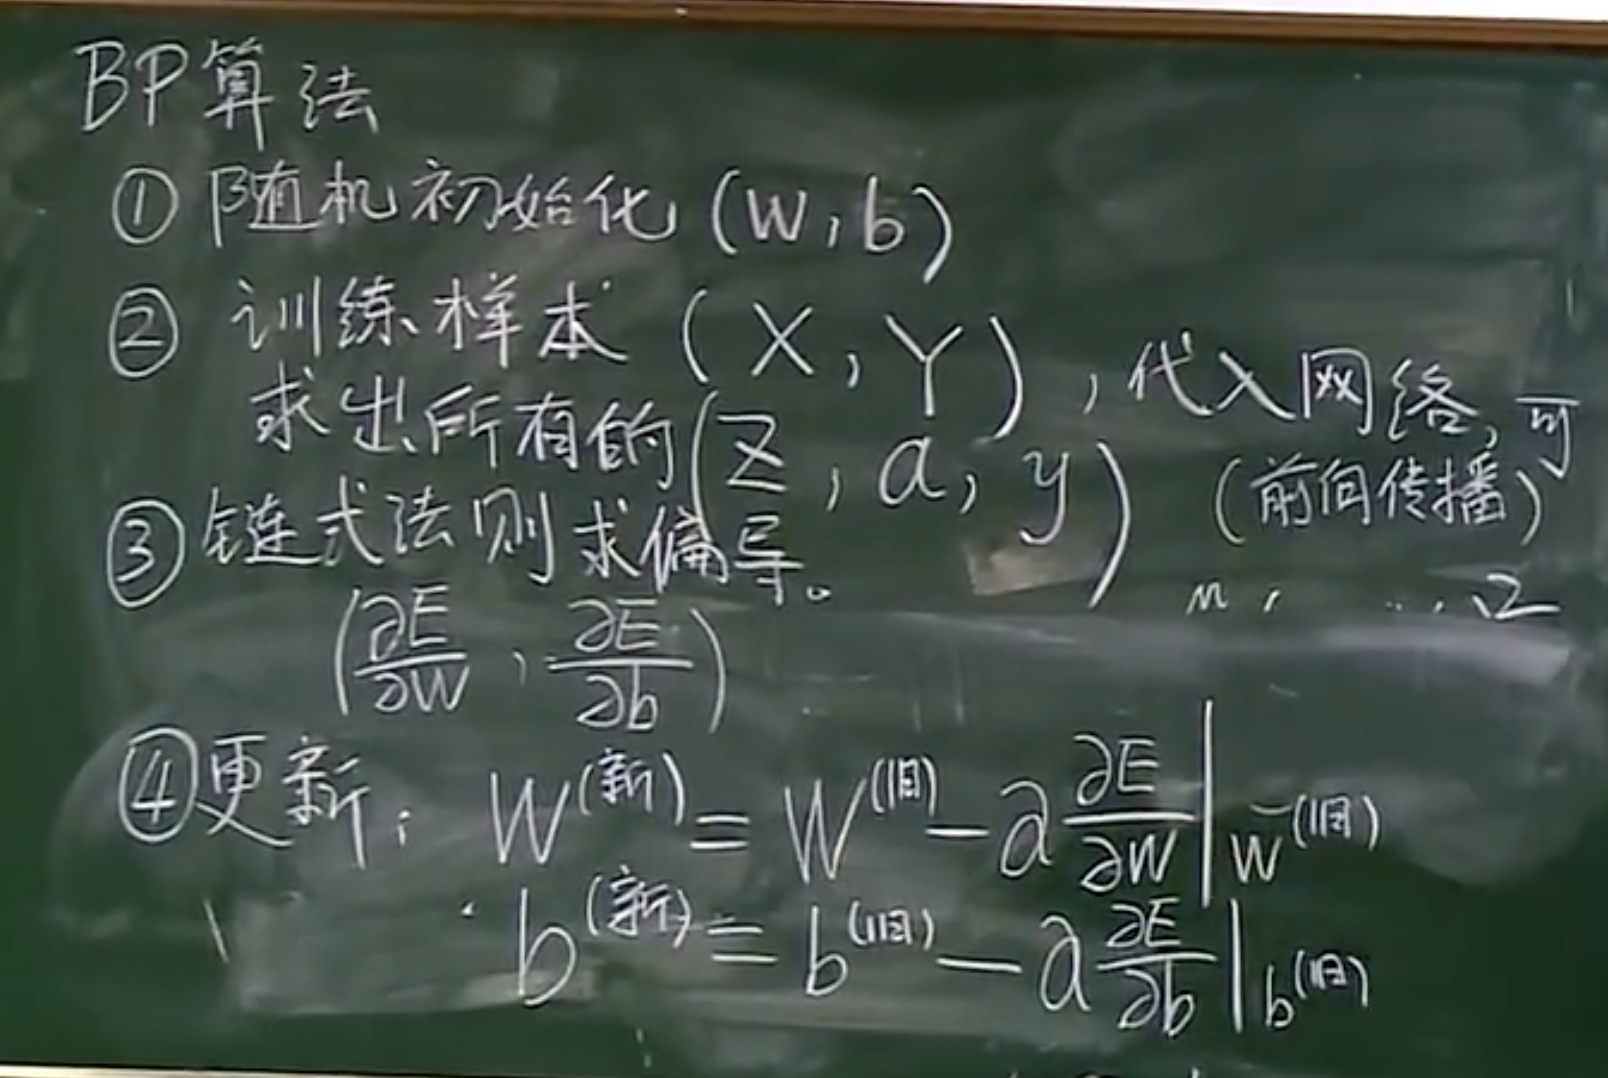 BP算法
① 随机初始化 (W, b)
② 训练样本 (X, Y), 代入网络, 可
求出所有的(Z, a, y) (前向传播)
③ 链式法则求偏导。
(∂E/∂W, ∂E/∂b)
④ 更新: W^(新) = W^(旧) - α ∂E/∂W | W^(旧)
b^(新) = b^(旧) - α ∂E/∂b | b^(旧)